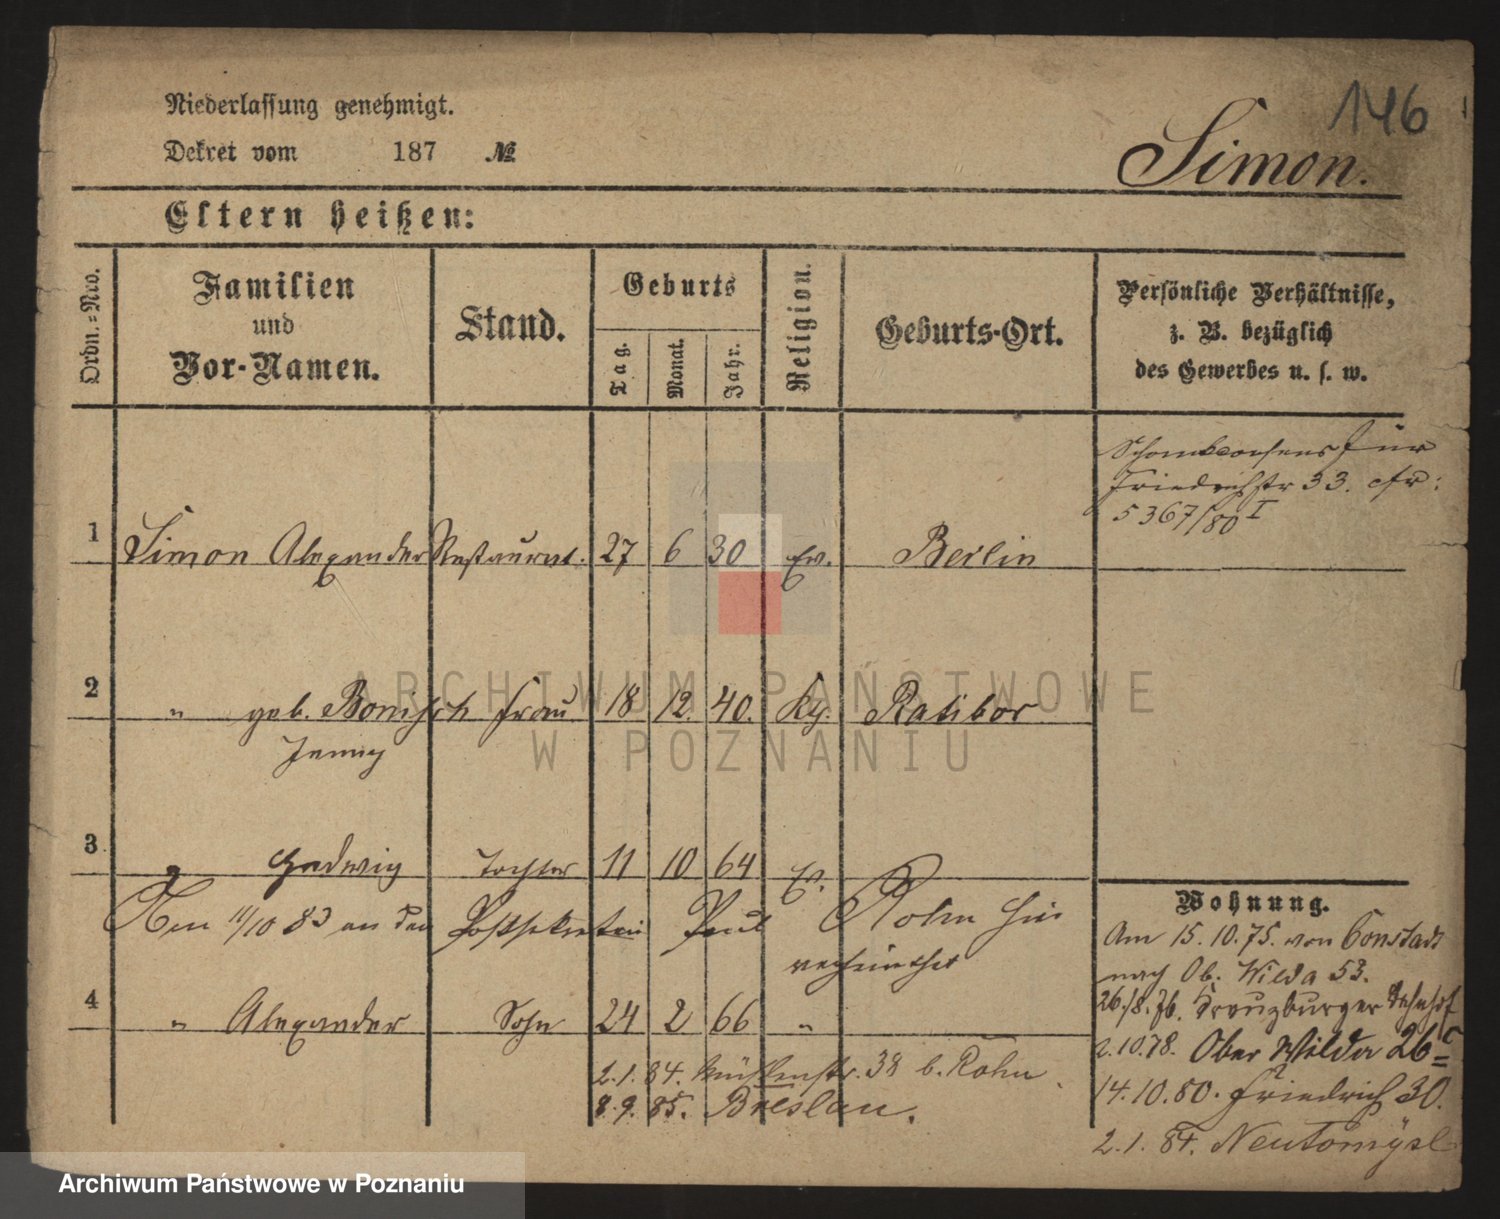 146
Niederlassung genehmigt.
Dekret vom 187 №
Simon.
Eltern heißen:
Ordn.-Nro.
Familien und Vor-Namen.
Stand.
Geburts
Tag.
Monat.
Jahr.
Religion.
Geburts-Ort.
Persönliche Verhältnisse,
z. B. bezüglich
des Gewerbes u. s. w.
Friedrichstr 33. cfr:
5367/80 I
1 Simon Alexander Restaurat. 27 6 30 Ev. Berlin
2 " geb. Bonisch Frau 18 12. 40. Kg. Ratibor
Jenny
3 Hedwig Tochter 11 10 64 Ev.
Den 11/10 83 an den Postsekretair Paul Rohn hier
verheirathet
4 " Alexander Sohn 24 2 66 "
2.1.84. Mühlenstr. 38 b. Rohn
8.9.85. Breslau.
Wohnung.
Am 15.10.75. von Constadt
nach Ob. Wilda 53.
26/8.76. Kreuzburger Bahnhof
2.10.78. Ober Wilda 26c
14.10.80. Friedrich 30.
2.1.84. Neutomysl
ARCHIWUM PAŃSTWOWE
W POZNANIU
Archiwum Państwowe w Poznaniu